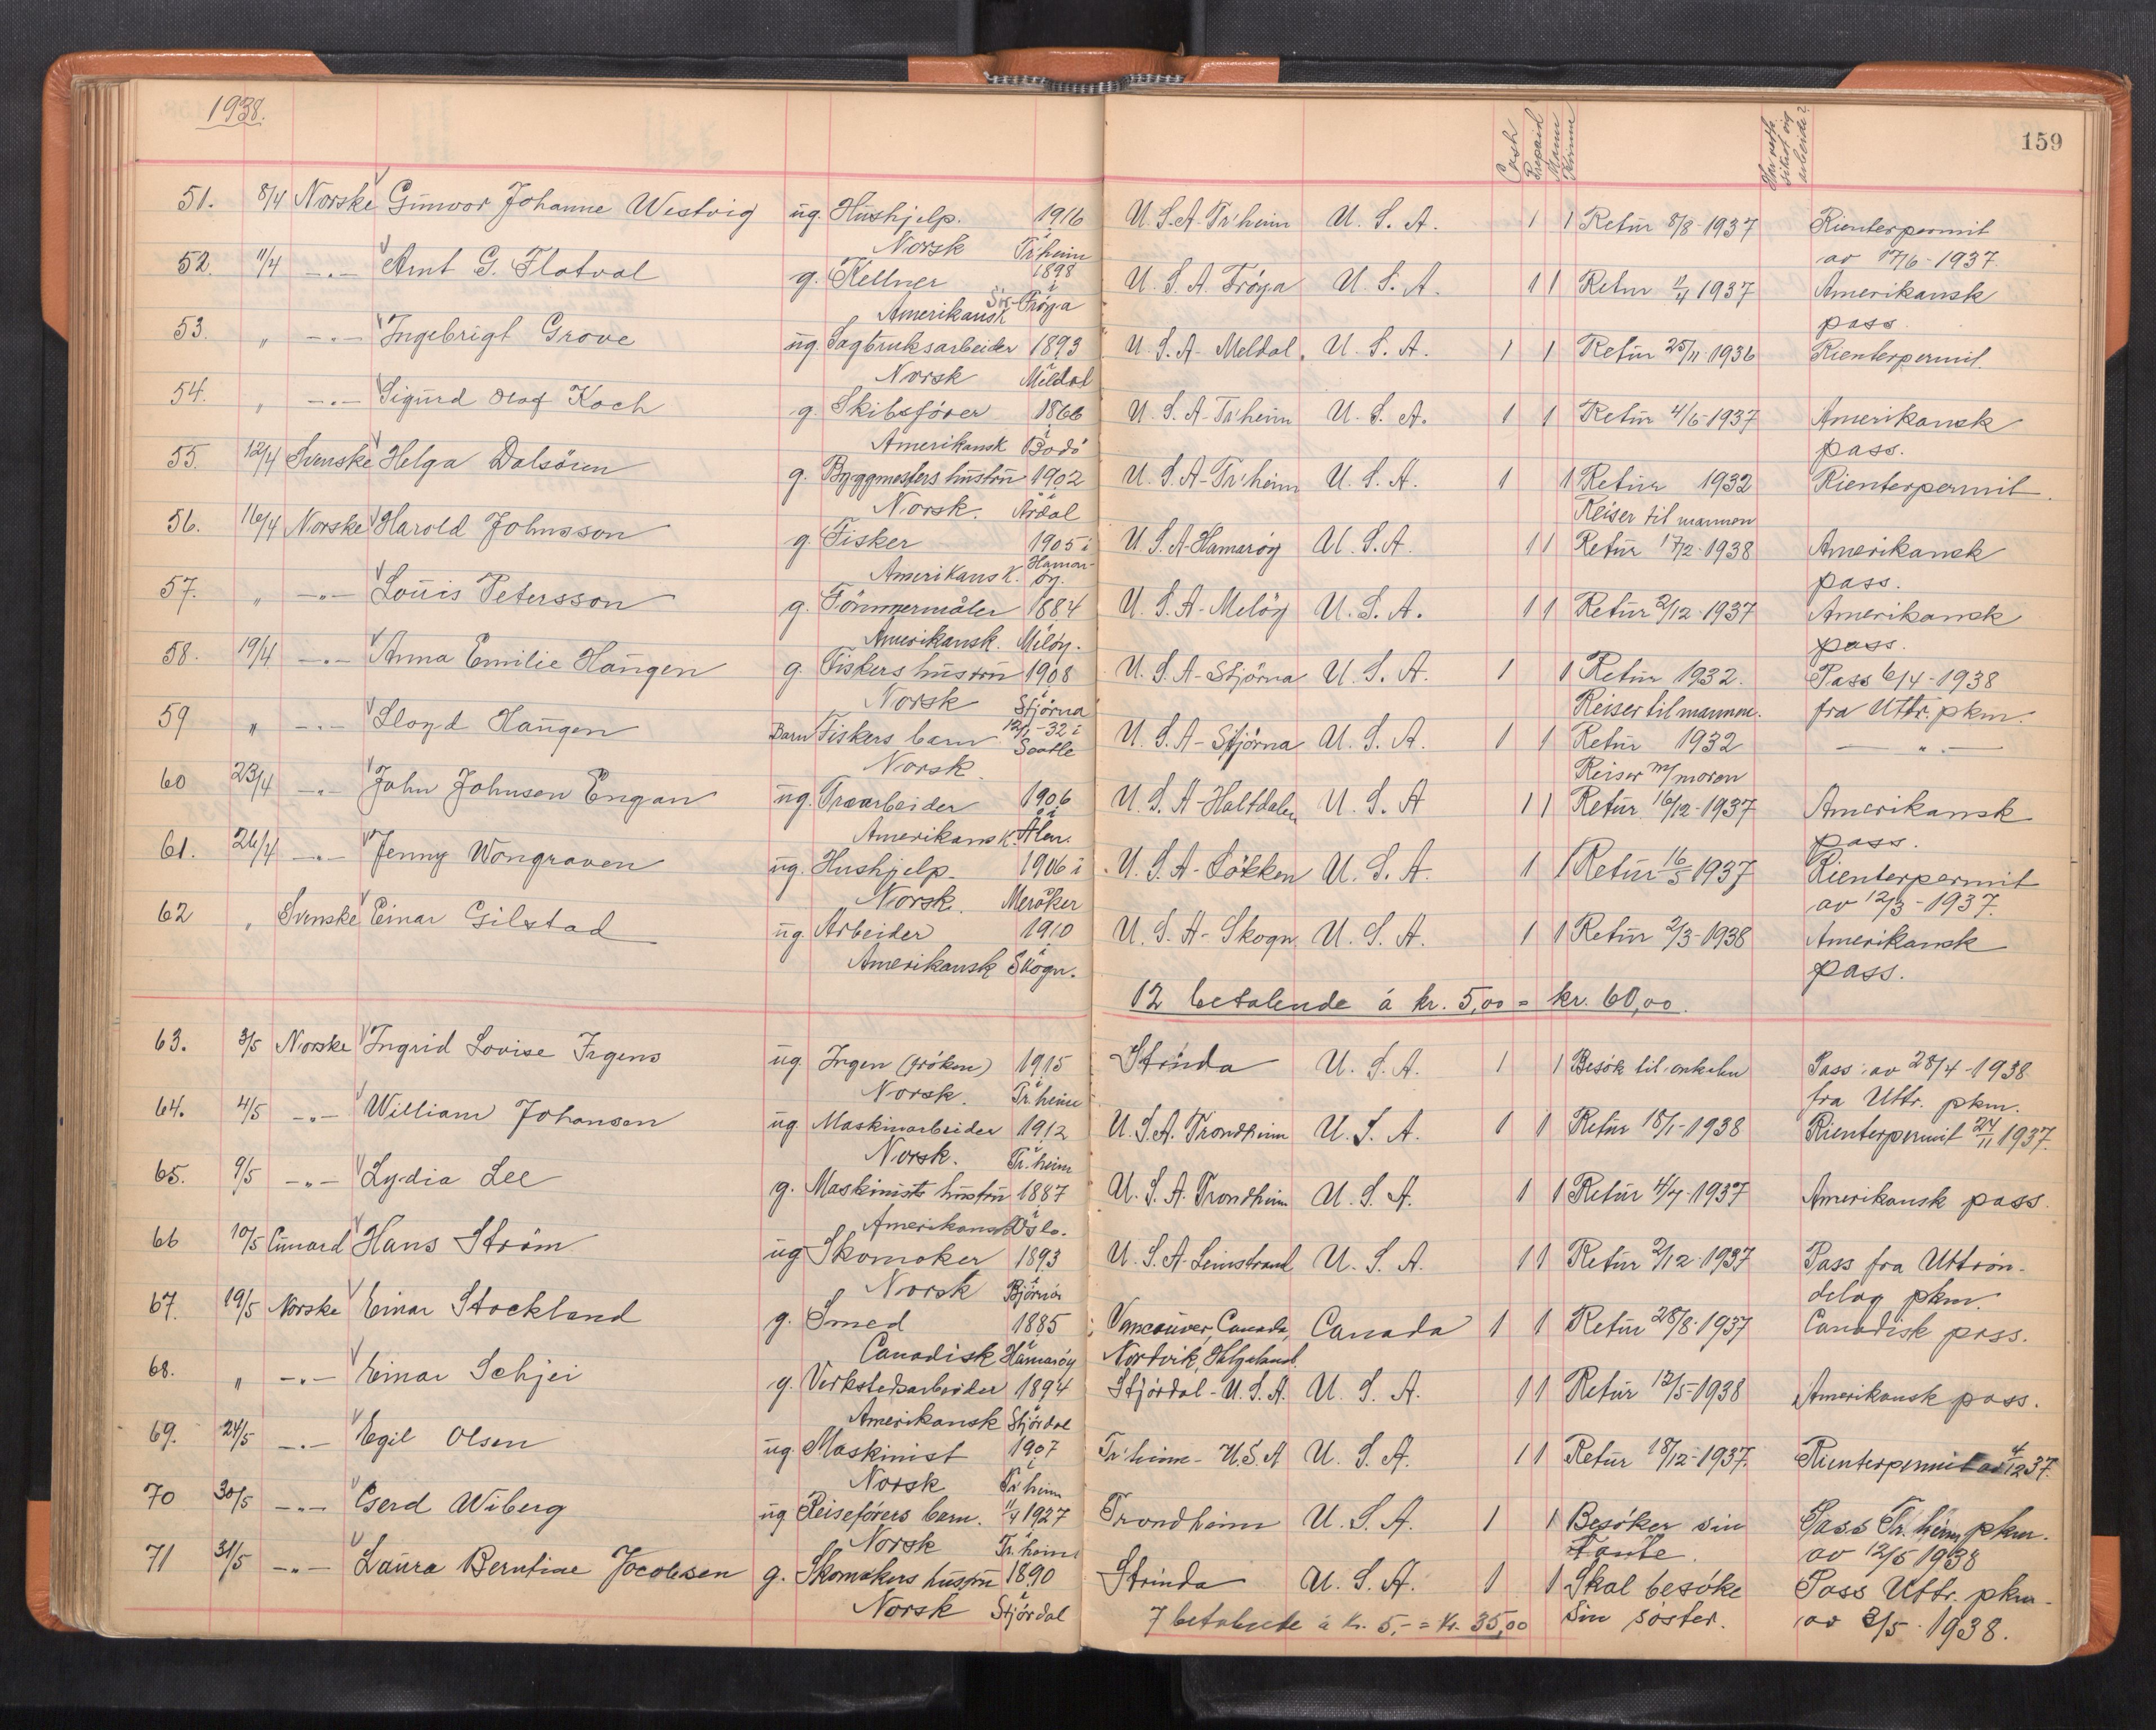 1938.
159
Cash Prepaid Mann Kvinne
51. 8/4 Norske Gunvor Johanne Westvig ug. Hushjelp. 1916 U.S.A. Tr.heim U.S.A. 1 1 Retur 8/8-1937 Rienterpermit
Norsk i Tr.heim av 17/6-1937.
52. 11/4 -"- Arnt G. Flatval g. Kellner 1898 U.S.A. Fröya U.S.A. 1 1 Retur 1937 Amerikansk
Amerikansk Sör-Fröya pass.
53. " -"- Ingebrigt Grove ug. Sagbruksarbeider 1893 U.S.A- Meldal. U.S.A. 1 1 Retur 25/11-1936 Rienterpermit.
Norsk i Meldal
54. " -"- Sigurd Olaf Koch g. Skibsförer 1866 U.S.A-Tr.heim U.S.A. 1 1 Retur 4/6-1937 Amerikansk
Amerikansk i Bodö pass.
55. 12/4 Svenske Helga Dalsören g. Byggmesters hustru 1902 U.S.A-Tr.heim U.S.A. 1 1 Retur 1932 Rienterpermit.
Norsk. i Årdal Reiser til mannen
56. 16/4 Norske Harold Johnsson g. Fisker 1905 i U.S.A-Hamaröy U.S.A. 1 1 Retur 17/2-1938 Amerikansk
Amerikansk. Hamaröy. pass.
57. " -"- Louis Petersson g. Tömmermåler 1884 U.S.A-Melöy U.S.A. 1 1 Retur 2/12-1937 Amerikansk
Amerikansk. i Melöy. pass.
58. 19/4 -"- Anna Emilie Haugen g. Fiskers hustru 1908 U.S.A-Stjörna U.S.A. 1 1 Retur 1932. Pass 6/4-1938
Norsk i Stjörna Reiser til mannen. fra Uttr. pkm.
59 " -"- Lloyd Haugen Barn Fiskers barn 12/1-32 i Seatle U.S.A-Stjörna U.S.A. 1 1 Retur 1932 -"-
Norsk. Reiser m/moren
60 23/4 -"- John Johnsen Engan ug. Træarbeider 1906 U.S.A-Haltdalen U.S.A 1 1 Retur 16/12-1937 Amerikansk
Amerikansk. i Ålen. pass.
61. 26/4 -"- Jenny Wongraven ug. Hushjelp. 1906 i U.S.A-Lökken U.S.A. 1 1 Retur 16/5 1937 Rienterpermit
Norsk. Meråker av 12/3-1937.
62 " Svenske Einar Gilstad ug Arbeider 1910 U.S.A-Skogn U.S.A. 1 1 Retur 2/3-1938 Amerikansk
Amerikansk i Skogn. pass.
12 betalende á kr. 5,00 = kr. 60,00.
63. 3/5 Norske Ingrid Lovise Irgens ug. Ingen (fröken) 1915 Strinda U.S.A. 1 1 Besök til onkelen Pass av 28/4-1938
Norsk. i Tr.heim fra Uttr. pkm.
64. 4/5 -"- William Johansen ug Maskinarbeider 1912 U.S.A. Trondheim U.S.A. 1 1 Retur 18/1-1938 Rienterpermit 24/11 1937.
Norsk. i Tr.heim
65. 9/5 -"- Lydia Lee g. Maskinists hustru 1887 U.S.A. Trondheim U.S.A. 1 1 Retur 4/7-1937 Amerikansk pass.
Amerikansk i Oslo.
66 10/5 Cunard Hans Ström ug Skomaker 1893 U.S.A-Leinstrand U.S.A. 1 1 Retur 2/12-1937 Pass fra Uttrön-
Norsk i Björnör delag pkm.
67. 19/5 Norske Einar Stockland g. Smed 1885 Vancouver, Canada, Canada 1 1 Retur 28/8-1937 Canadisk pass.
Canadisk i Hamaröy Nordvik, Helgeland.
68. " -"- Einar Schjei g. Verkstedsarbeider 1894 Stjördal-U.S.A. U.S.A. 1 1 Retur 12/5-1938 Amerikansk pass.
Amerikansk i Stjördal
69. 24/5 -"- Egil Olsen ug. Maskinist 1907 Tr.heim-U.S.A U.S.A. 1 1 Retur 18/12-1937. Rienterpermit av 4/12 37.
Norsk i Tr.heim
70 30/5 -"- Gerd Wiberg ug Reiseförers barn. 11/4 1927 Trondheim U.S.A. 1 1 Besöker sin Pass Tr.heim pkm.
Norsk i Tr.heim tante. av 12/5 1938
71 31/5 -"- Laura Berntine Jacobsen g. Skomakers hustru 1890 Strinda U.S.A. 1 1 Skal besöke Pass Uttr. pkm.
Norsk i Stjördal 7 betalende á kr. 5,- = kr. 35,00 sin söster. av 3/5-1938.